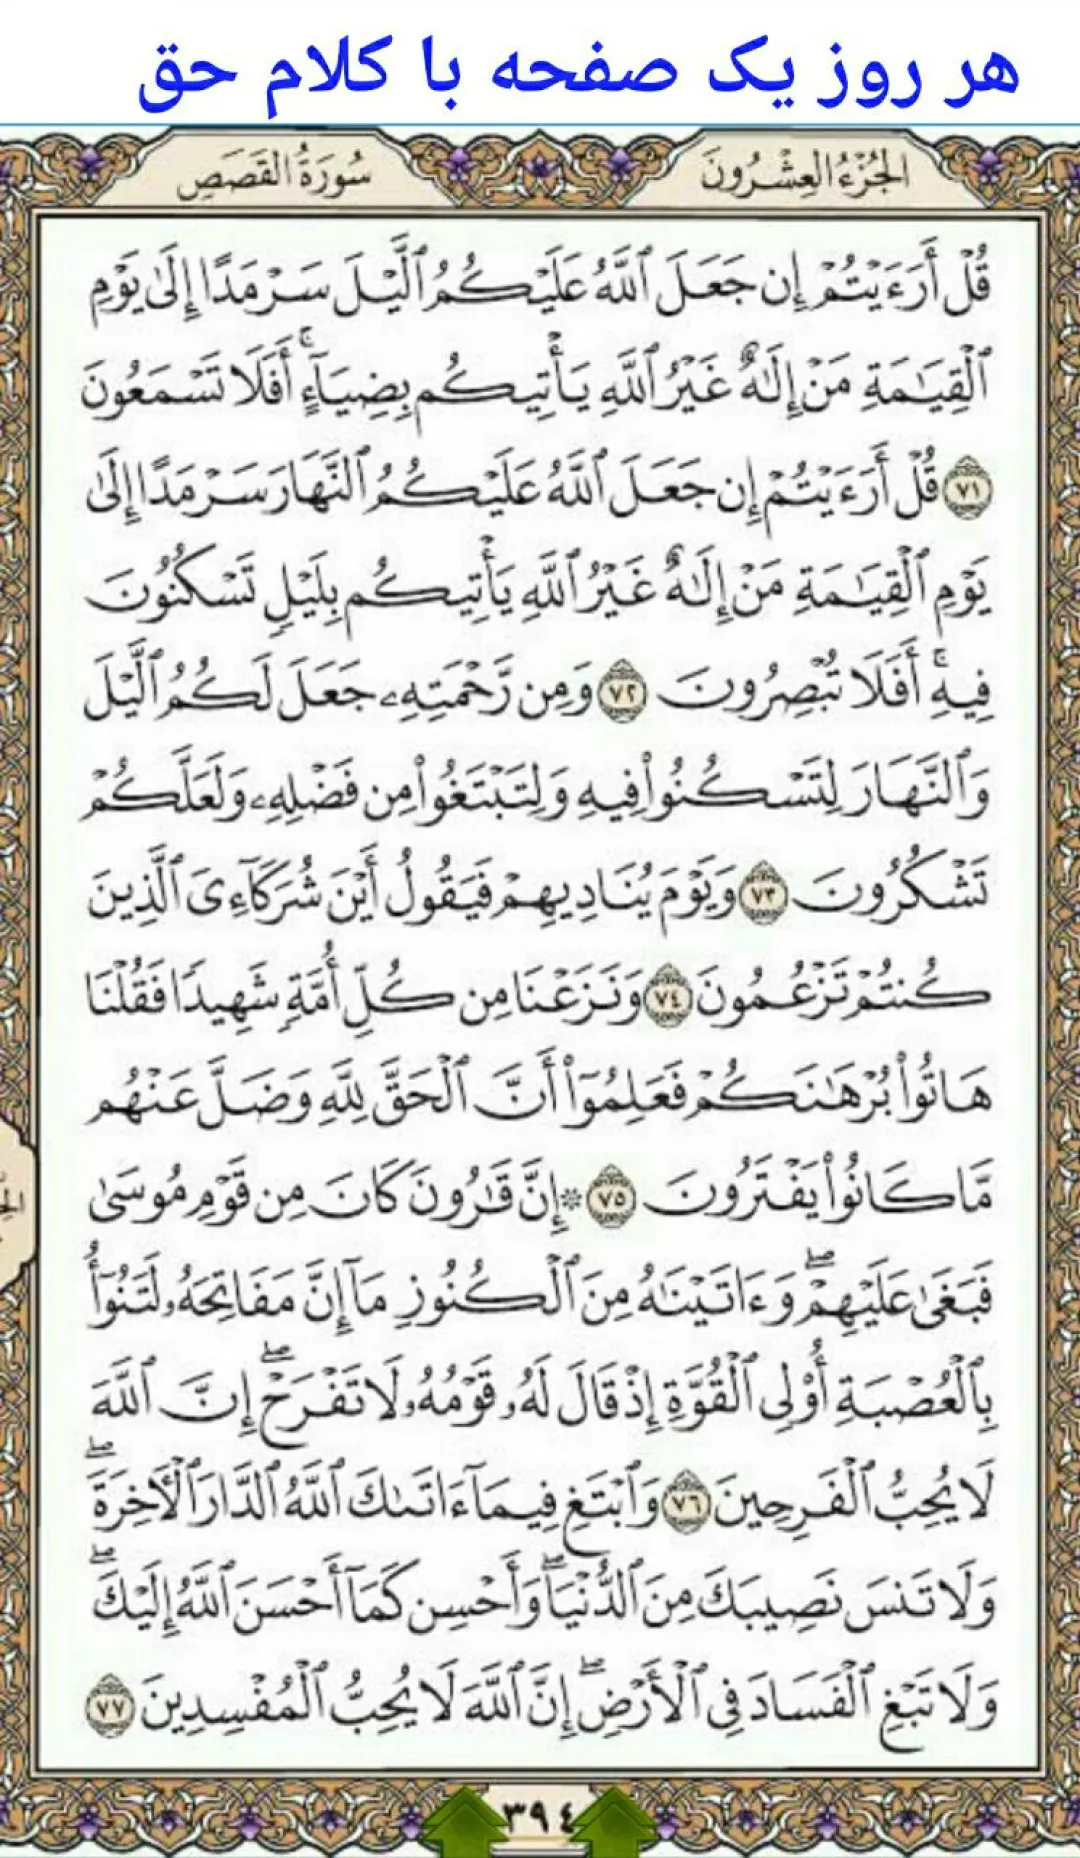 هر روز یک صفحه با کلام حق
الجُزْءُ العِشْرُونَ
سُورَةُ القَصَصِ
قُلْ أَرَءَيْتُمْ إِن جَعَلَ ٱللَّهُ عَلَيْكُمُ ٱلَّيْلَ سَرْمَدًا إِلَىٰ يَوْمِ
ٱلْقِيَـٰمَةِ مَنْ إِلَـٰهٌ غَيْرُ ٱللَّهِ يَأْتِيكُم بِضِيَآءٍ ۚ أَفَلَا تَسْمَعُونَ
٧١ قُلْ أَرَءَيْتُمْ إِن جَعَلَ ٱللَّهُ عَلَيْكُمُ ٱلنَّهَارَ سَرْمَدًا إِلَىٰ
يَوْمِ ٱلْقِيَـٰمَةِ مَنْ إِلَـٰهٌ غَيْرُ ٱللَّهِ يَأْتِيكُم بِلَيْلٍ تَسْكُنُونَ
فِيهِ ۚ أَفَلَا تُبْصِرُونَ ٧٢ وَمِن رَّحْمَتِهِۦ جَعَلَ لَكُمُ ٱلَّيْلَ
وَٱلنَّهَارَ لِتَسْكُنُوا۟ فِيهِ وَلِتَبْتَغُوا۟ مِن فَضْلِهِۦ وَلَعَلَّكُمْ
تَشْكُرُونَ ٧٣ وَيَوْمَ يُنَادِيهِمْ فَيَقُولُ أَيْنَ شُرَكَآءِىَ ٱلَّذِينَ
كُنتُمْ تَزْعُمُونَ ٧٤ وَنَزَعْنَا مِن كُلِّ أُمَّةٍ شَهِيدًا فَقُلْنَا
هَاتُوا۟ بُرْهَـٰنَكُمْ فَعَلِمُوٓا۟ أَنَّ ٱلْحَقَّ لِلَّهِ وَضَلَّ عَنْهُم
مَّا كَانُوا۟ يَفْتَرُونَ ٧٥ ۞ إِنَّ قَـٰرُونَ كَانَ مِن قَوْمِ مُوسَىٰ
فَبَغَىٰ عَلَيْهِمْ ۖ وَءَاتَيْنَـٰهُ مِنَ ٱلْكُنُوزِ مَآ إِنَّ مَفَاتِحَهُۥ لَتَنُوٓأُ
بِٱلْعُصْبَةِ أُو۟لِى ٱلْقُوَّةِ إِذْ قَالَ لَهُۥ قَوْمُهُۥ لَا تَفْرَحْ ۖ إِنَّ ٱللَّهَ
لَا يُحِبُّ ٱلْفَرِحِينَ ٧٦ وَٱبْتَغِ فِيمَآ ءَاتَىٰكَ ٱللَّهُ ٱلدَّارَ ٱلْـَٔاخِرَةَ ۖ
وَلَا تَنسَ نَصِيبَكَ مِنَ ٱلدُّنْيَا ۖ وَأَحْسِن كَمَآ أَحْسَنَ ٱللَّهُ إِلَيْكَ ۖ
وَلَا تَبْغِ ٱلْفَسَادَ فِى ٱلْأَرْضِ ۖ إِنَّ ٱللَّهَ لَا يُحِبُّ ٱلْمُفْسِدِينَ ٧٧
٣٩٤